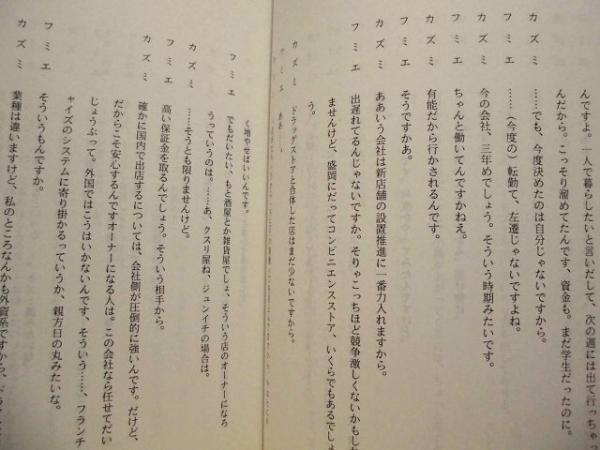 んですよ。一人で暮らしたいと言いだして、次の週には出て行っちゃっ
んだから。こっそり溜めてたんです、資金も。まだ学生だったのに。
カズミ ……でも、今度決めたのは自分じゃないですから。
フミエ ……（今度の）転勤て、左遷じゃないですよね。
カズミ 今の会社、三年めでしょう。そういう時期みたいです。
フミエ ちゃんと働いてんですかねえ。
カズミ 有能だから行かされるんです。
フミエ そうですかあ。
カズミ ああいう会社は新店舗の設置推進に一番力入れますから。
フミエ 出遅れてるんじゃないですか。そりゃこっちほど競争激しくないかもしれ
ませんけど、盛岡にだってコンビニエンスストア、いくらでもあるでしょ
う。
カズミ ドラッグストアと合体した店はまだ少ないですから。
フミエ ああ
く増やせばいいんです。
フミエ でもだいたい、もと酒屋とか雑貨屋でしょ、そういう店のオーナーになろ
うっていうのは。……あ、クスリ屋ね、ジュンイチの場合は。
カズミ ……そうとも限りませんけど。
フミエ 高い保証金を取るんでしょう。そういう相手から。
カズミ 確かに国内で出店するについては、会社側が圧倒的に強いんです。だけど、
だからこそ安心するんですオーナーになる人は。この会社なら任せてだい
じょうぶって。外国ではこうはいかないんです、そういう……、フランチ
ャイズのシステムに寄り掛かるっていうか、親方日の丸みたいな。
フミエ そういうもんですか。
カズミ 業種は違いますけど、私のところなんかも外資系ですから、